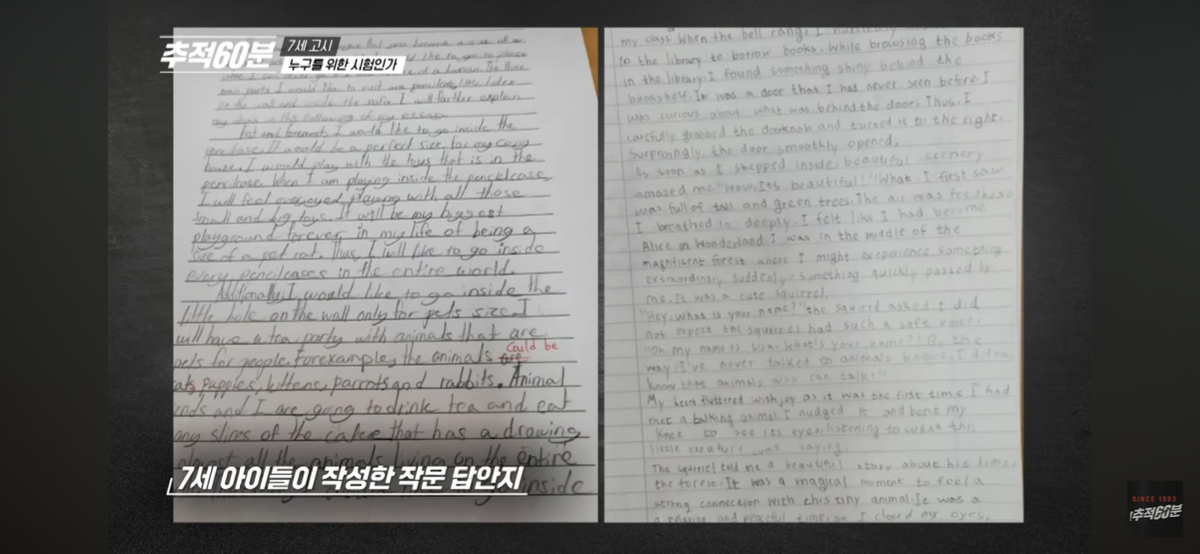 추적60분
7세 고시
누구를 위한 시험인가
that you become a size of a
like to go to places
of a human. The three
main parts I would like to visit are pencilcase, little holes
on the wall and inside the sofa. I will farther explain
my steps in the following of my essay.
First and foremost, I would like to go inside the
pencilcase. It would be a perfect size for my cozy
house. I would play with the toys that is in the
pencilcase. When I am playing inside the pencilcase,
I will feel overjoyed, playing with all those
small and big toys. It will be my biggest
playground forever in my life of being a
size of a pet rat. Thus, I will like to go inside
every pencilcases in the entire world.
Additionally, I would like to go inside the
little hole on the wall only for pets size. I
will have a tea party with animals that are
pets for people. Forexample, the animals are could be
cats, puppies, kittens, parrots and rabbits. Animal
friends and I are going to drink tea and eat
any slices of the cake that has a drawing
almost all the animals living on the entire
inside
7세 아이들이 작성한 작문 답안지
my class. When the bell rang, I hurriedly
to the library to borrow books. While browsing the books
in the library, I found something shiny behind the
bookshelf. It was a door that I had never seen before. I
was curious about what was behind the door. Thus, I
carefully grabbed the doorknob and turned it to the right.
Surprisingly, the door smoothly opened.
As soon as I stepped inside, beautiful scenery
amazed me. "Wow, Its beautiful!" What I first saw
was full of tall and green trees. The air was fresh, so
I breathed in deeply. I felt like I had become
Alice in Wonderland. I was in the middle of the
magnificent forest where I might experience something
extraordinary. Suddenly, something quickly passed by
me. It was a cute squirrel.
"Hey, what is your name?" the squirrel asked. I did
not expect the squirrel had such a soft voice.
"Oh, my name is Lisa. What's your name? By the
way, I've never talked to animals before. I didn't
know that animals also can talk!"
My heart fluttered with joy as it was the first time I had
met a talking animal. I nudged it and bent my
knee to see its eyes, listening to what this
little creature was saying.
The squirrel told me a beautiful story about his home,
the forest. It was a magical moment to feel a
strong connection with this tiny animal. It was a
relaxing and peaceful time, so I closed my eyes,
SINCE 1983
추적60분